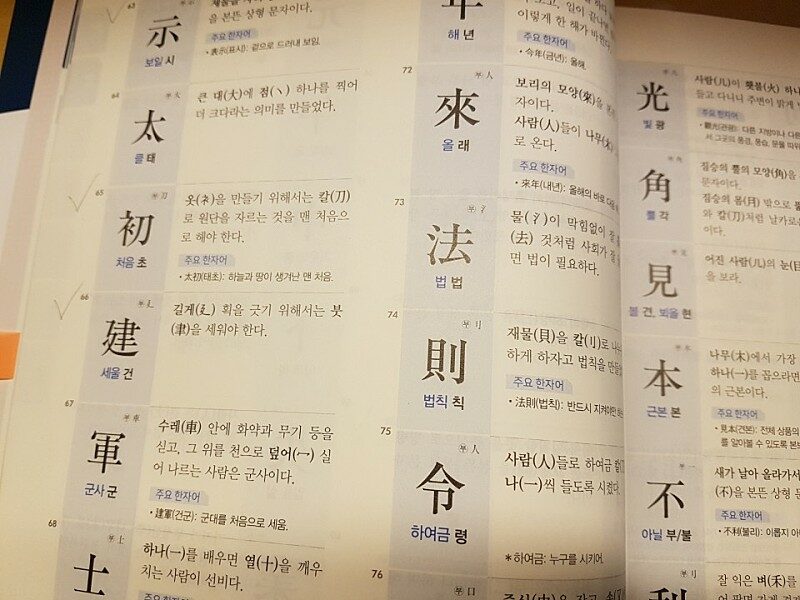 63
示
보일 시
을 본뜬 상형 문자이다.
주요 한자어
• 表示(표시): 겉으로 드러내 보임.
64
太
클 태
큰 대(大)에 점(丶) 하나를 찍어
더 크다라는 의미를 만들었다.
65
初
처음 초
옷(衤)을 만들기 위해서는 칼(刀)
로 원단을 자르는 것을 맨 처음으
로 해야 한다.
주요 한자어
• 太初(태초): 하늘과 땅이 생겨난 맨 처음.
66
建
세울 건
길게(廴) 획을 긋기 위해서는 붓
(聿)을 세워야 한다.
67
軍
군사 군
수레(車) 안에 화약과 무기 등을
싣고, 그 위를 천으로 덮어(冖) 실
어 나르는 사람은 군사이다.
주요 한자어
• 建軍(건군): 군대를 처음으로 세움.
68
士
하나(一)를 배우면 열(十)을 깨우
치는 사람이 선비다.
주요 한자어
年
해 년
이렇게 한 해가
주요 한자어
• 今年(금년): 올해.
72
來
올 래
보리의 모양(來)을
자이다.
사람(人)들이 나무(木)
로 온다.
주요 한자어
• 來年(내년): 올해의 바로 다음
73
法
법 법
물(氵)이 막힘없이 잘
(去) 것처럼 사회가 잘
면 법이 필요하다.
74
則
법칙 칙
재물(貝)을 칼(刂)로 나누
하게 하자고 법칙을 만들
주요 한자어
• 法則(법칙): 반드시 지켜야만
75
令
하여금 령
사람(人)들로 하여금
나(一)씩 들도록 시켰다.
*하여금: 누구를 시키어.
76
光
빛 광
사람(儿)이 횃불(火) 하나
들고 다니니 주변이 밝게
주요 한자어
• 觀光(관광): 다른 지방이나 다른
서 그곳의 풍경, 풍습, 문물 따위
角
뿔 각
짐승의 뿔의 모양(角)을
문자이다.
짐승의 몸(月) 밖으로
와 칼(刀)처럼 날카로운
이다.
見
볼 견, 뵈올 현
어진 사람(儿)의 눈(目)
을 보라.
本
근본 본
나무(木)에서 가장
하나(一)를 꼽으라면
의 근본이다.
주요 한자어
• 見本(견본): 전체 상품의
를 알아볼 수 있도록 본보
不
아닐 부/불
새가 날아 올라가서
(不)을 본뜬 상형
주요 한자어
• 不利(불리): 이롭지
利
잘 익은 벼(禾)를